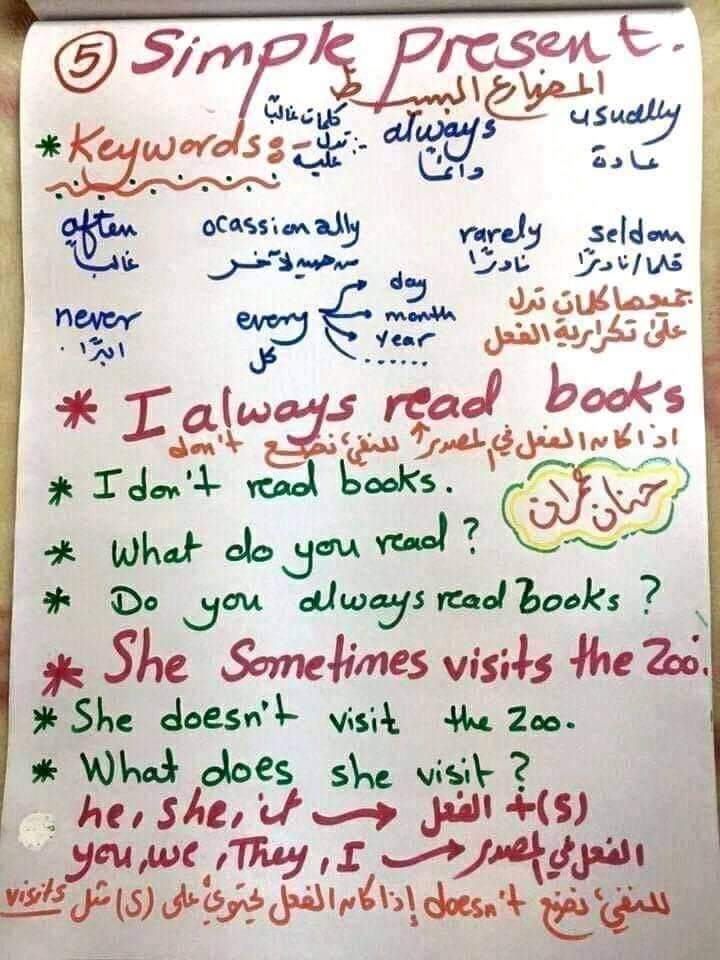 5 Simple Present.
المضارع البسيط
* Keywords :- كلمات غالباً تدل عليه :- always usually
دائماً عادة
often ocassionally rarely seldom
غالباً من حين لآخر نادرًا قلما/نادرًا
never every → day
month
year
.......
ابدًا كل
جميعها كلمات تدل
على تكرارية الفعل
* I always read books
اذا كان الفعل في المصدر للنفي نضع don't
* I don't read books.
حنان عمران
* What do you read ?
* Do you always read books ?
* She Sometimes visits the Zoo.
* She doesn't visit the Zoo.
* What does she visit ?
he, she, it → الفعل + (S)
you, we, They, I → الفعل في المصدر
للنفي نضع doesn't إذا كان الفعل يحتوي على (S) مثل visits